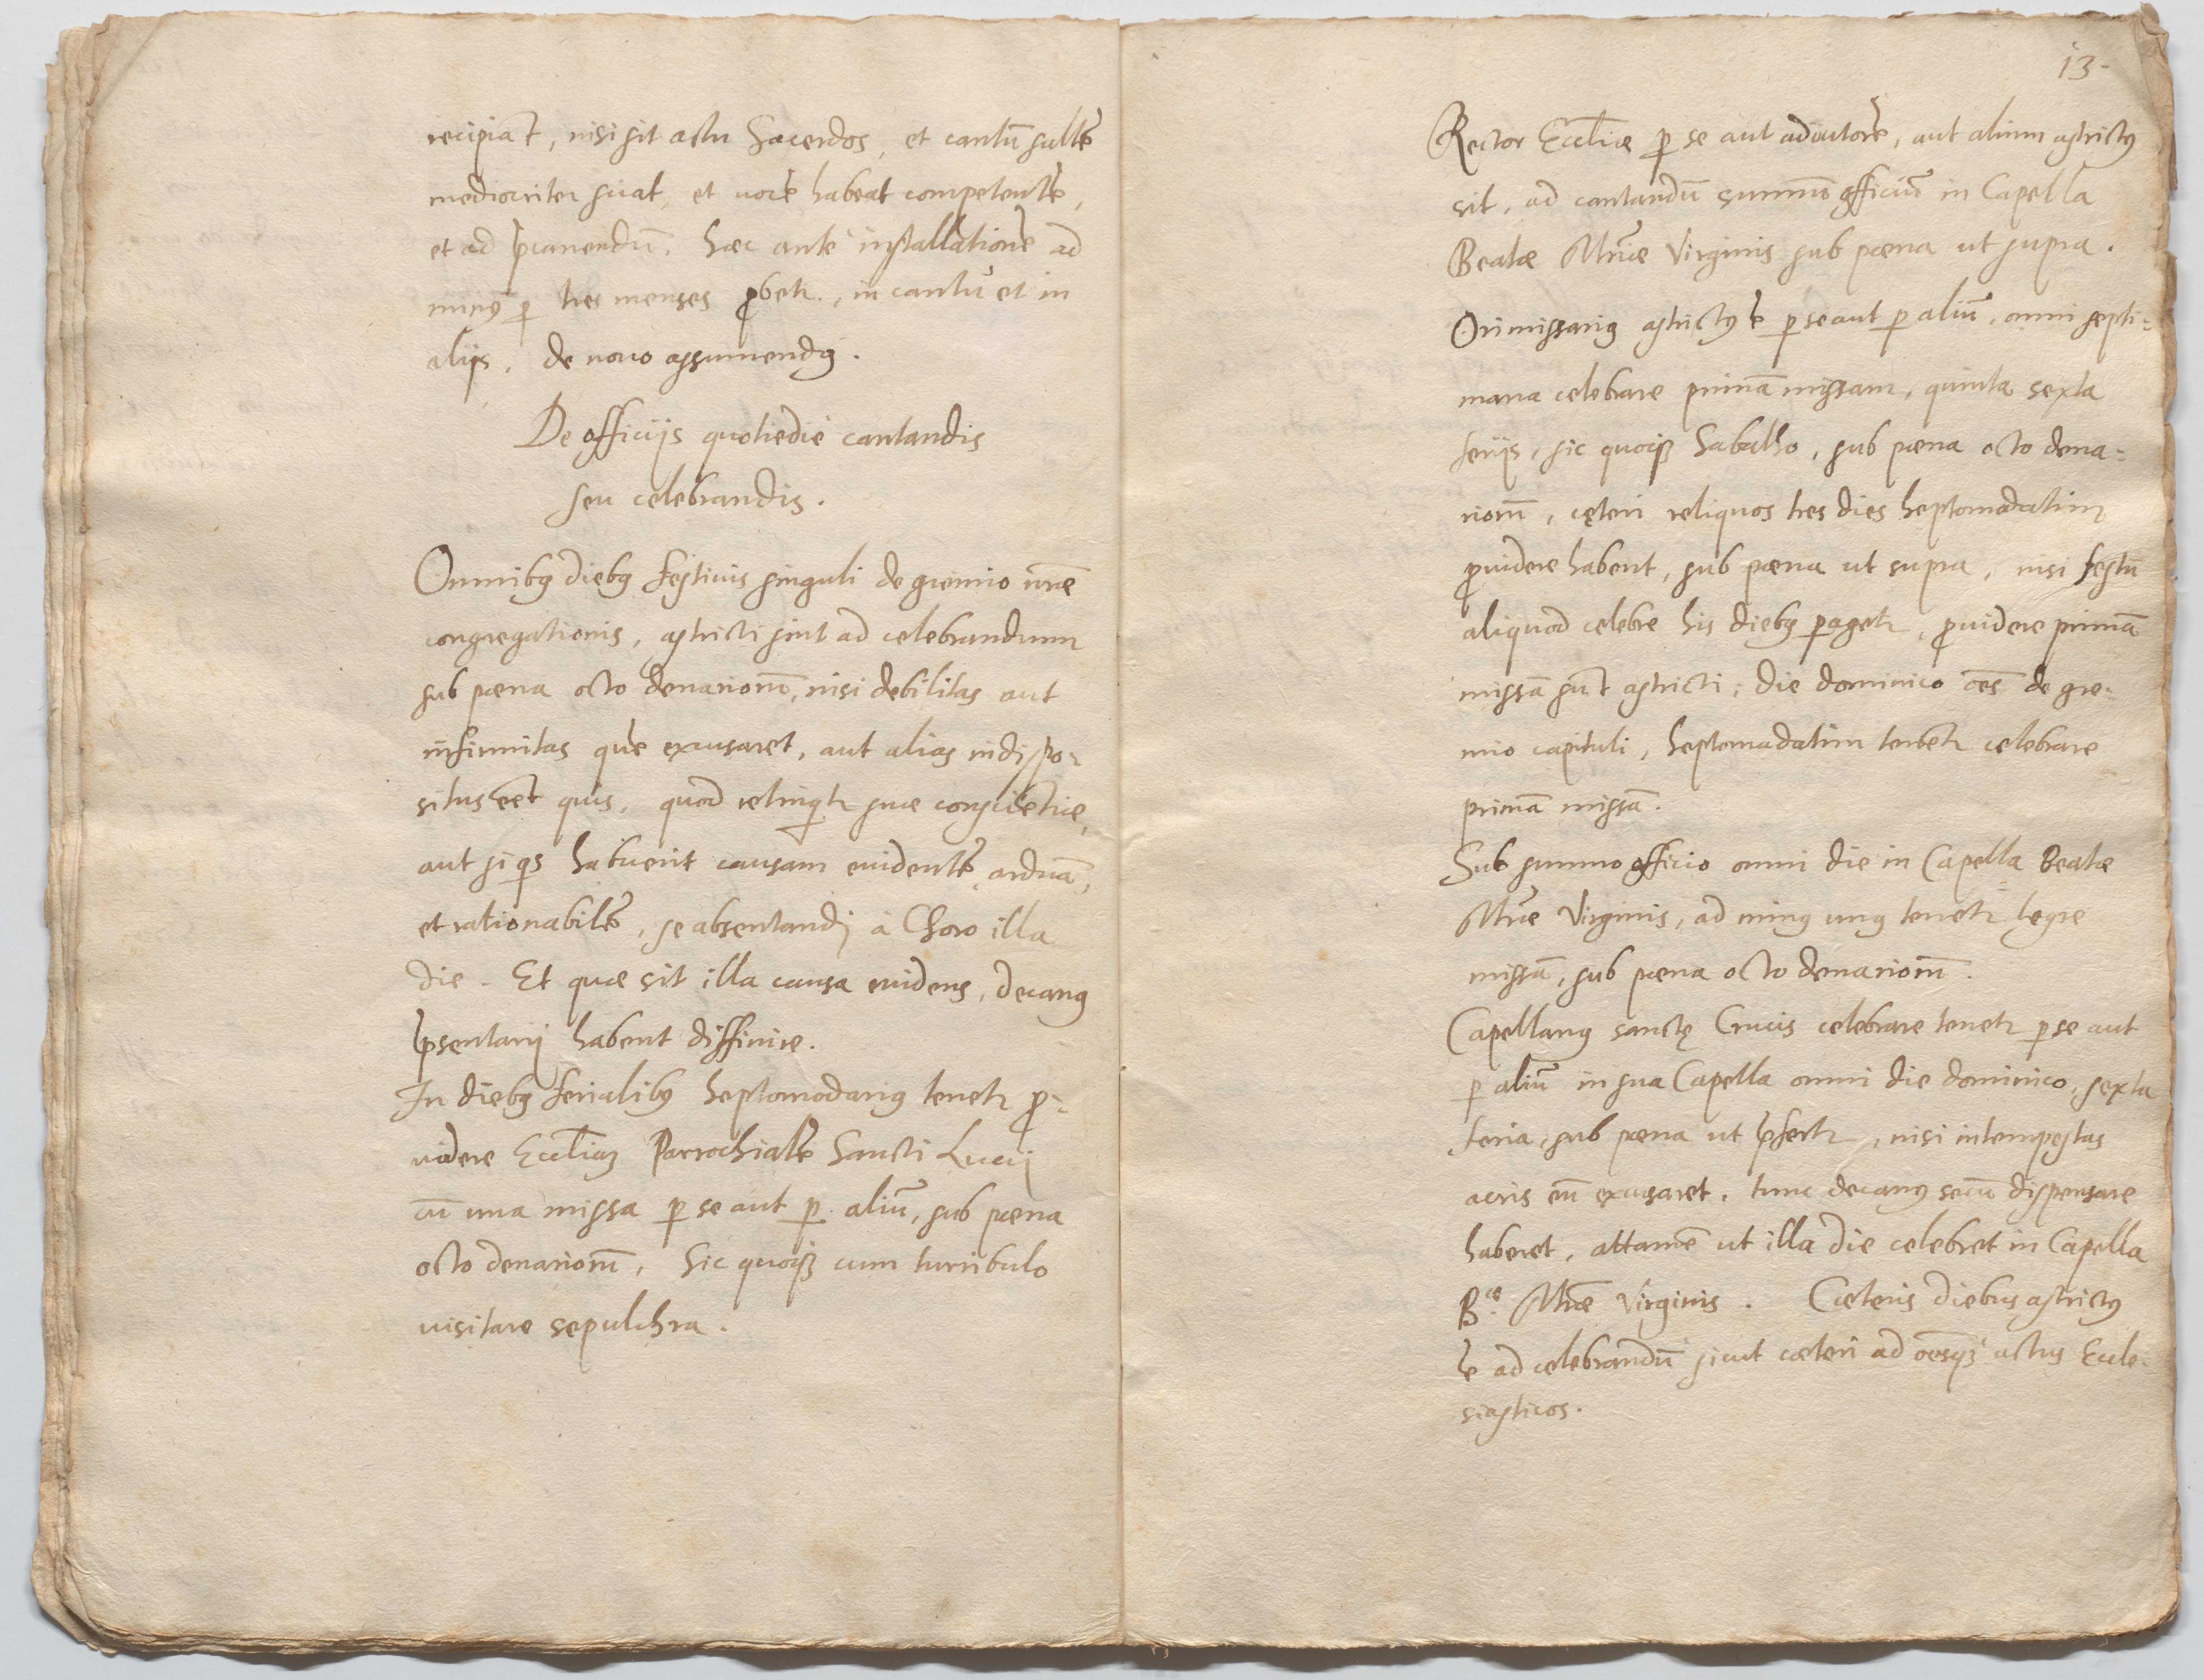 recipiat, nisi sit actu Sacerdos, et cantū saltē
mediocriter sciat, et vocē habeat competentē,
et ad p̄canendū. haec ante installationē ad
minꝰ ꝑ tres menses ꝓbetr., in cantu et in
alijs, de novo assumendꝰ.
De officijs quotiedie cantandis
seu celebrandis.
Omnibꝰ diebꝰ festivis singuli de gremio nr̄ae
congregationis, astricti sint ad celebrandum
sub poena octo denarior̄, nisi debilitas aut
infirmitas quē excusaret, aut alias indispo-
situs eēt quis, quod relinqitr suae conscientiae,
aut si q̄s habuerit causam evidentē, arduā,
et rationabilē, se absentandj à Choro illa
die. Et quae sit illa causa evidens, decanꝰ
p̄sentarij habent diffinire.
In diebꝰ ferialibꝰ heptomodariꝰ tenetr ꝓ-
videre Eccl̄iaꝫ Parrochialē Sancti Lucij
cū una missa ꝑ se aut ꝑ aliū, sub poena
octo denarior̄, Sic quoqꝫ cum turribulo
visitare sepulchra.
13-
Rector Eccl̄iae ꝑ se aut adiutorē, aut alium astrictꝰ
sit, ad cantandū summū officiū in Capella
Beatae Mr̄iae Virginis sub poena ut supra.
Primissariꝰ astrictꝰ ē ꝑ se aut ꝑ aliū, omni septi=
mana celebrare primā missam, quinta sexta
ferijs, sic quoqꝫ Sabatho, sub poena octo dena=
rior̄, cęteri reliquos tres dies heptomadatim
ꝓvidere habent, sub poena ut supra, nisi festū
aliquod celebre his diebꝰ ꝑagetr, ꝓvidere primā
missā sunt astricti; die dominico oēs de gre-
mio capituli, heptomadatim tenētr celebrare
primā missā.
Sub summo officio omni die in Capella Beatae
Mr̄iae Virginis, ad minꝰ unꝰ tenetr legre
missā, sub poena octo denarior̄.
Capellanꝰ sanctę Crucis celebrare tenetr ꝑ se aut
ꝑ aliū in sua Capella omni die dominico, sexta
feria, sub poena ut p̄fertr, nisi intempestas
aeris eū excusaret, tunc decanꝰ secū dispensare
haberet, attamē ut illa die celebret in Capella
B.ae Mr̄iae Virginis. Caeteris diebus astrictꝰ
ē ad celebrandū sicut caeteri ad oēsqꝫ actus Eccle-
siasticos.